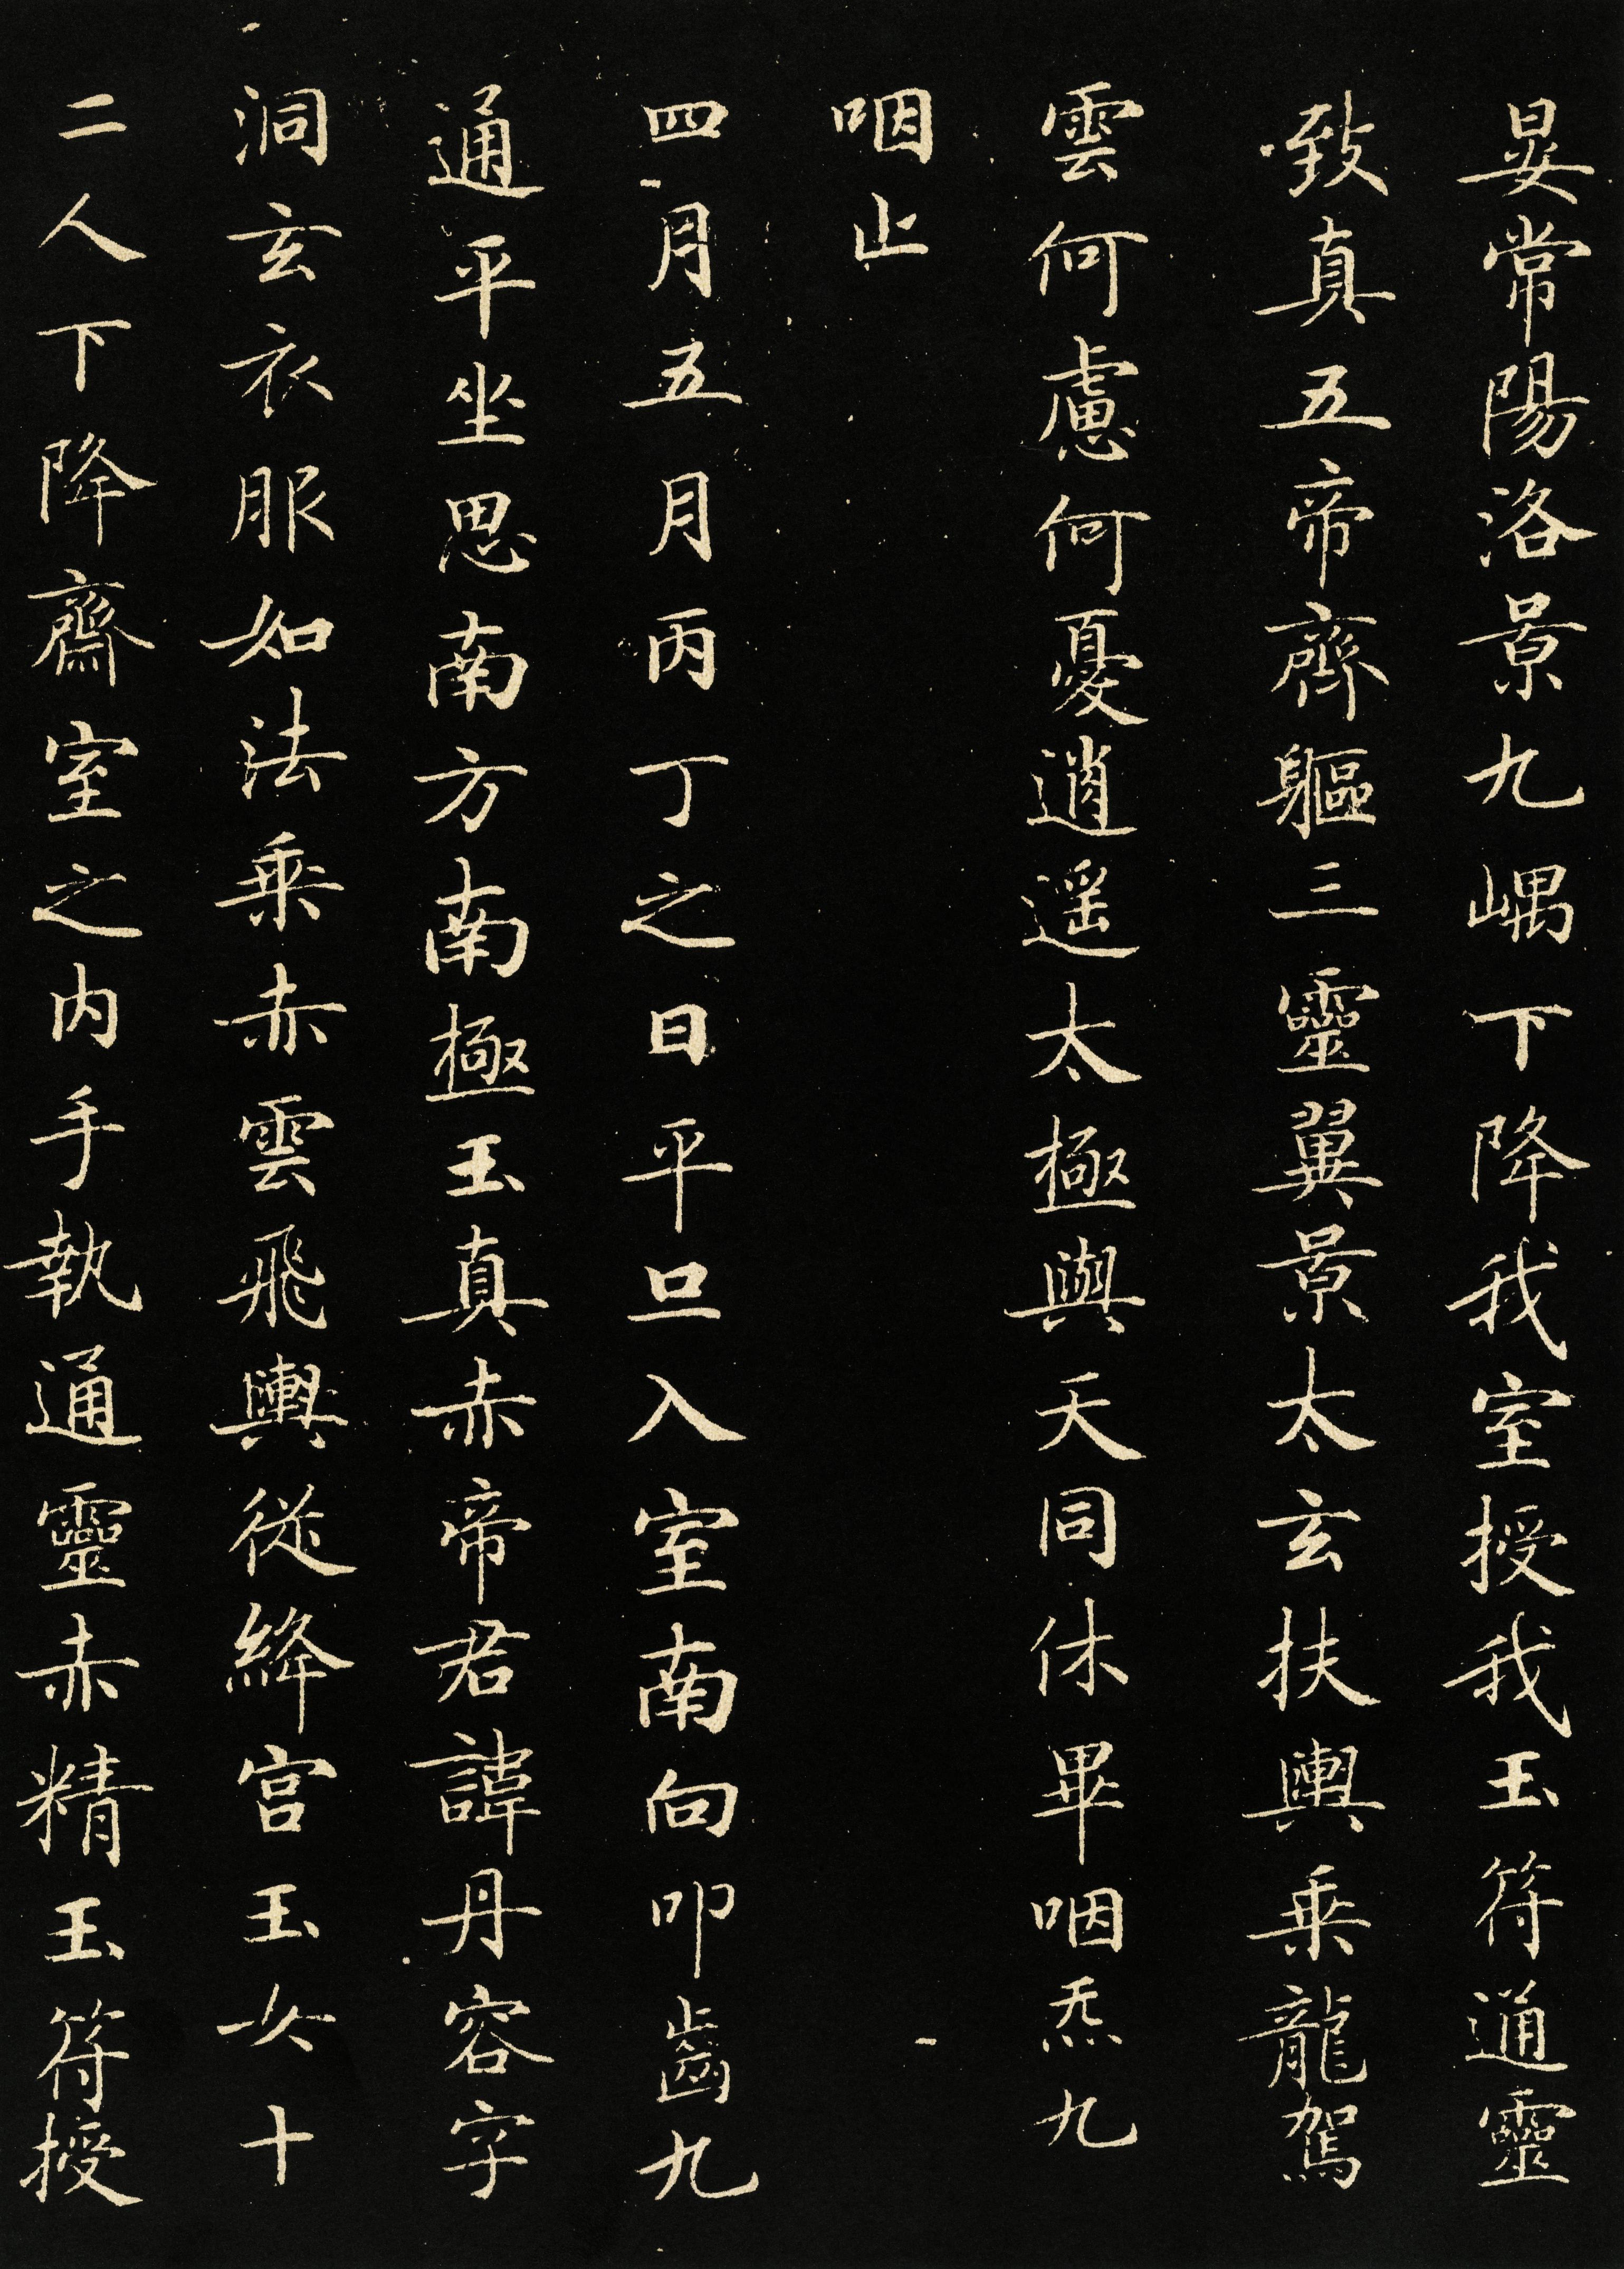 晏常陽洛景九嵎下降我室授我玉符通靈
致真五帝齊軀三靈翼景太玄扶輿乗龍駕
雲何慮何憂逍遥太極與天同休畢咽炁九
咽止
四月五月丙丁之日平旦入室南向叩齒九
通平坐思南方南極玉真赤帝君諱丹容字
洞玄衣服如法乗赤雲飛輿從絳宫玉女十
二人下降齋室之内手執通靈赤精玉符授